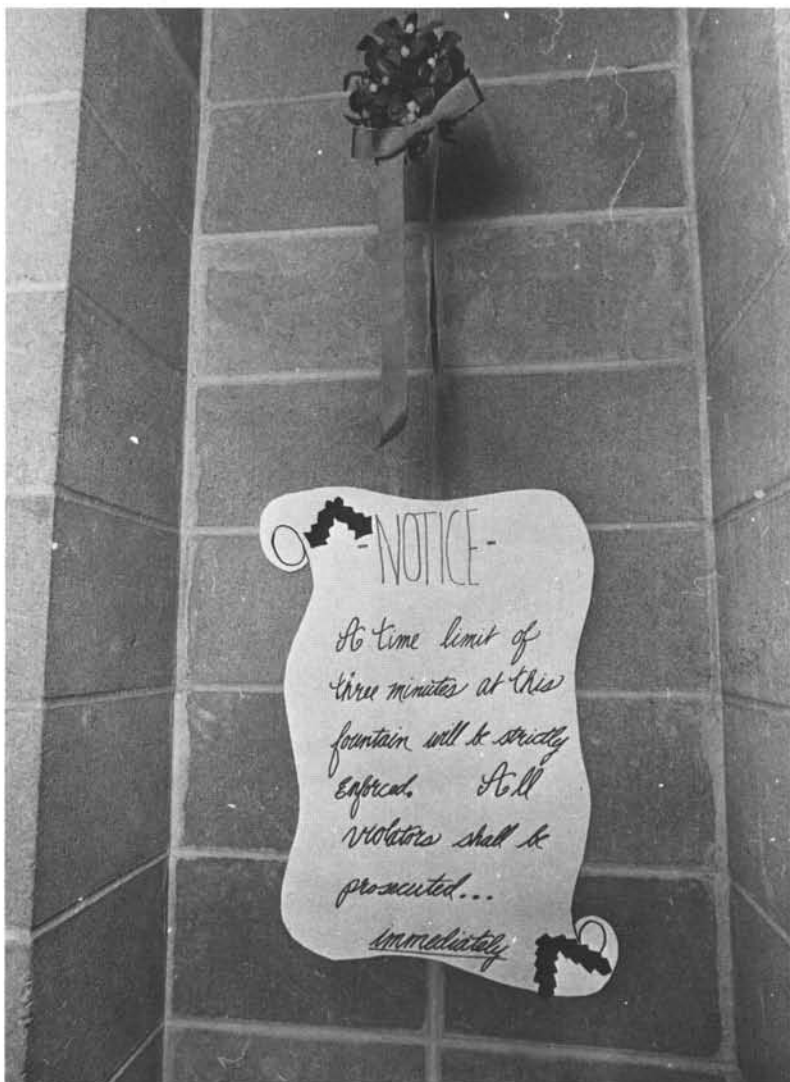 -NOTICE-
A time limit of
three minutes at this
fountain will be strictly
Enforced. All
violators shall be
prosecuted...
immediately